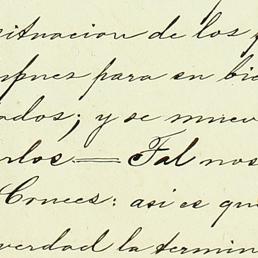 situacion de los
para su bie
ados; y se muev
rlos.— Tal nos
Cruces: asi es qu
verdad la termin